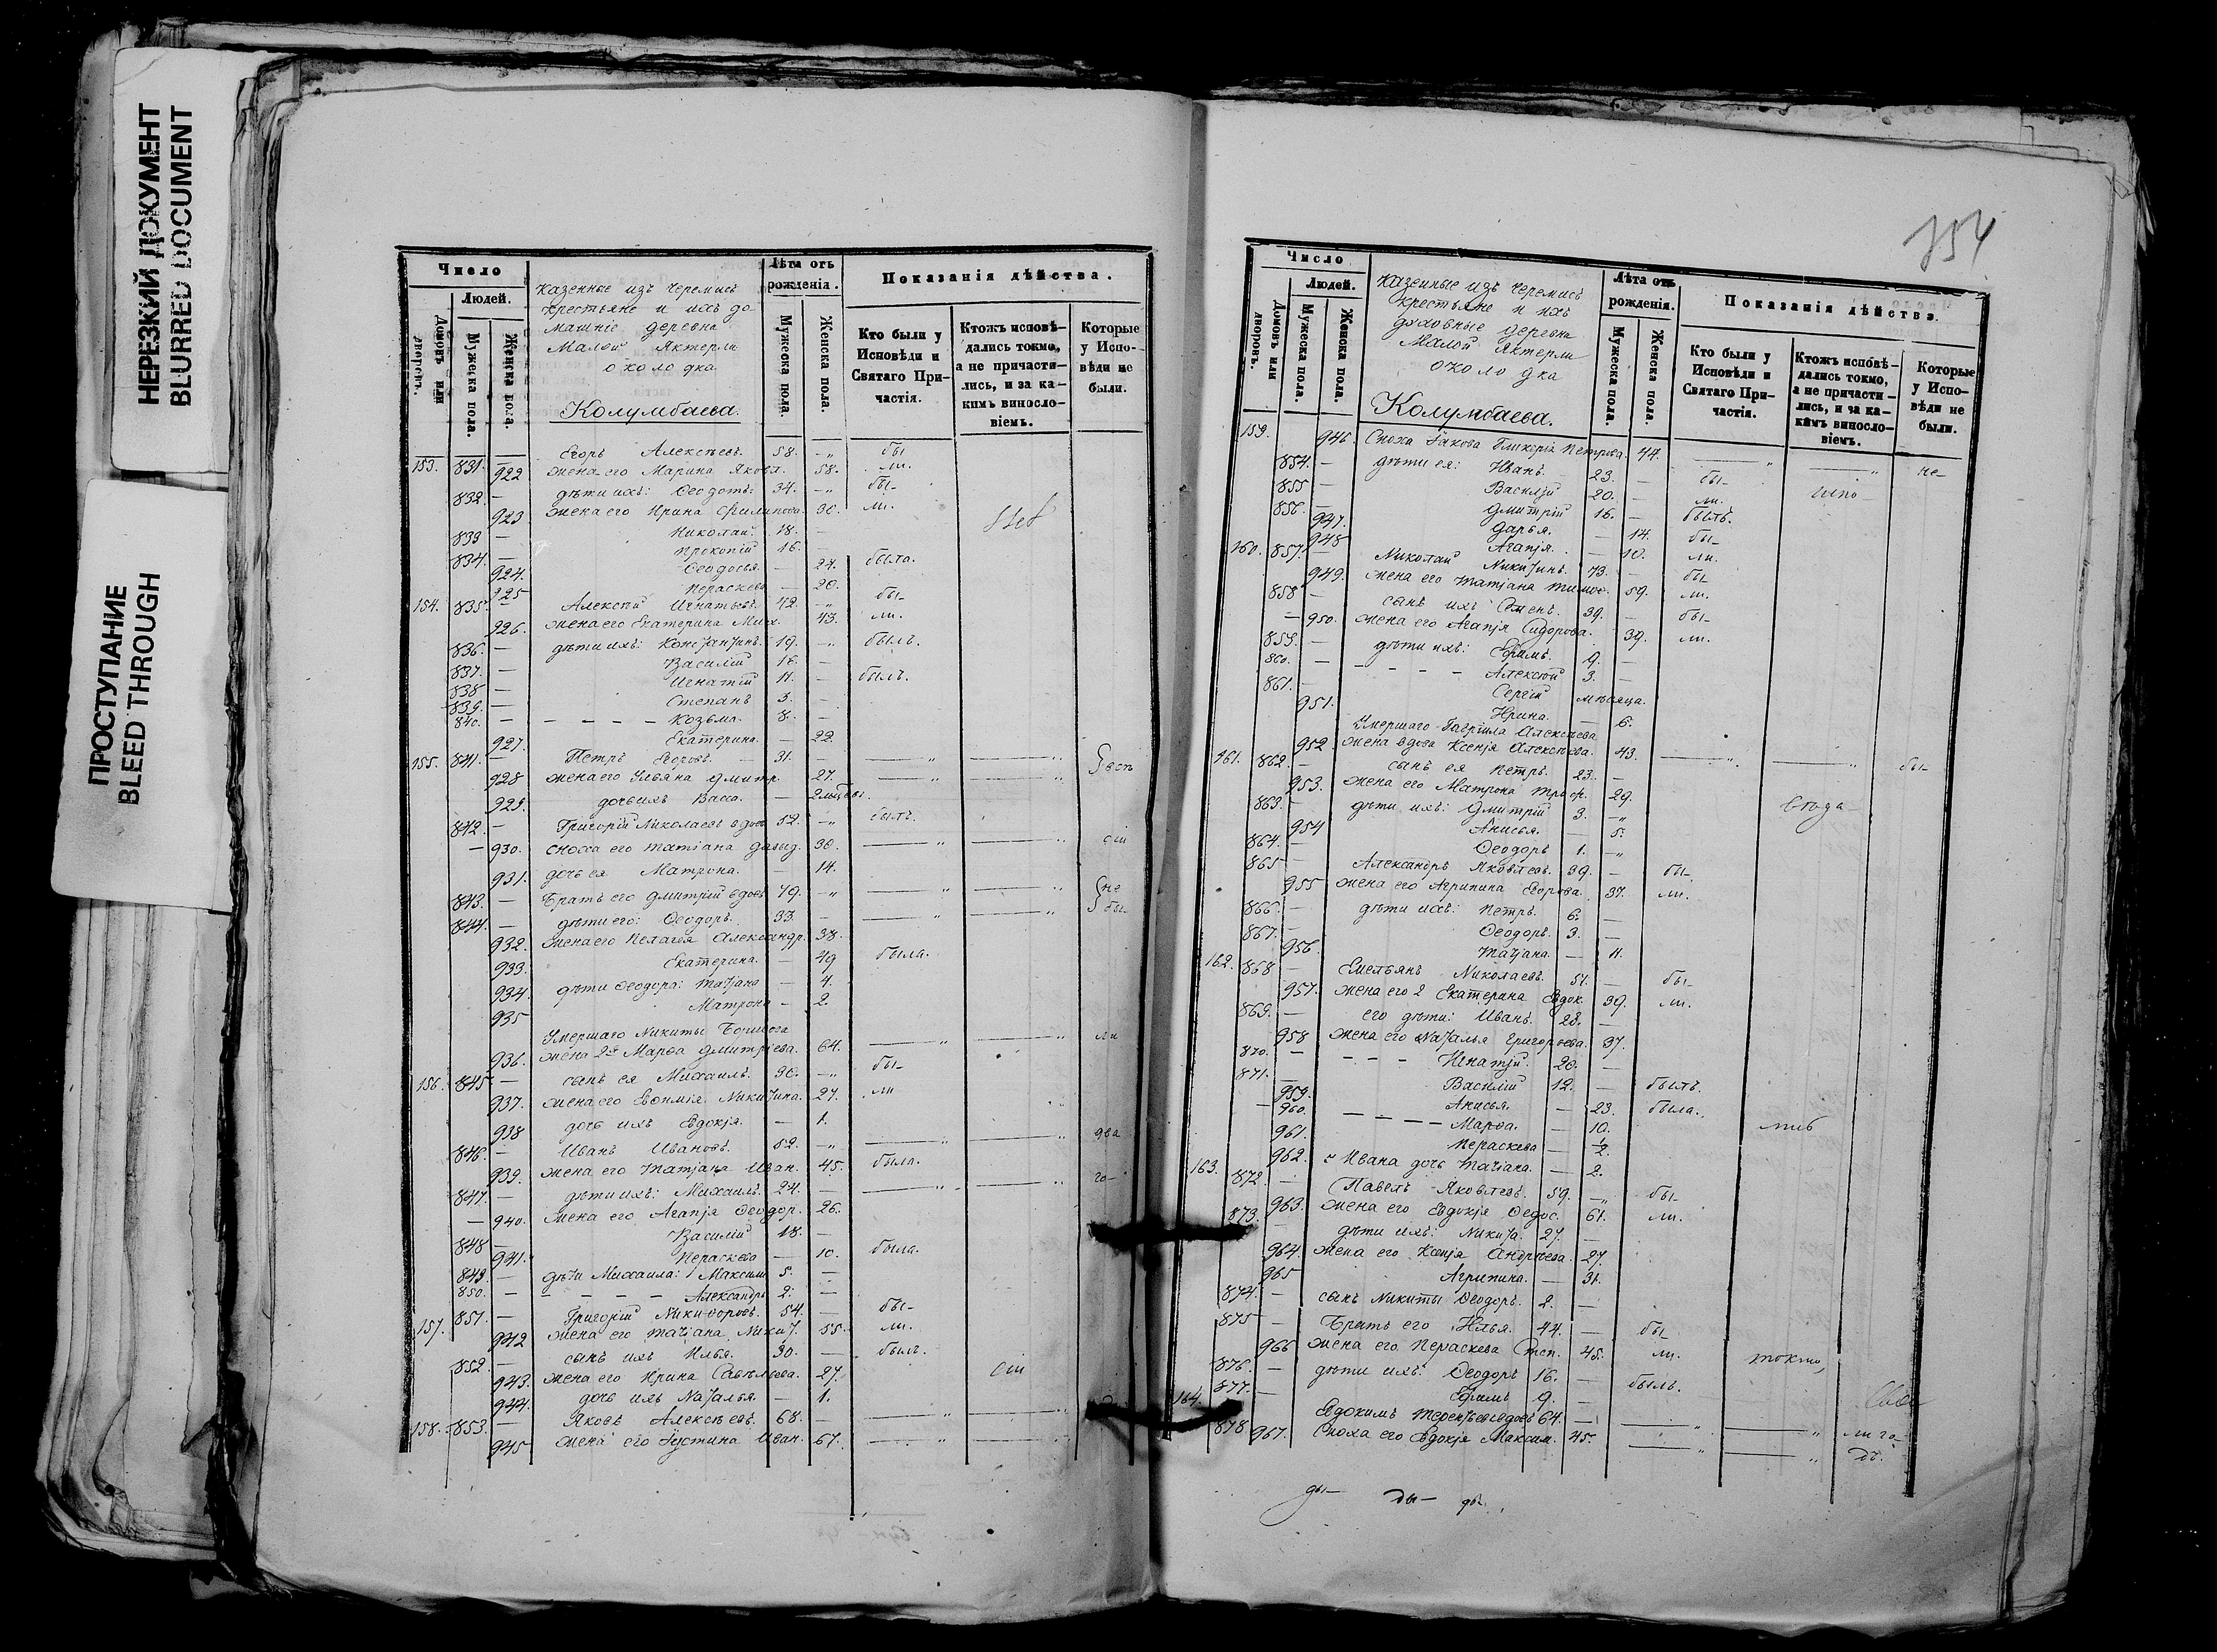 НЕРЕЗКИЙ ДОКУМЕНТ
BLURRED DOCUMENT
ПРОСТУПАНИЕ
BLEED THROUGH
Число
Людей.
Домовъ или дворовъ.
Мужеска пола.
Женска пола.
казенные изъ черемисъ
крестьяне и ихъ до
машніе деревна
Малой Яктерли
околодка
Колумбаева.
Лѣта отъ рожденія.
Мужеска пола.
Женска пола.
Показанія дѣйства.
Кто были у Исповѣди и Святаго Причастія.
Ктожъ исповѣдались токмо, а не причастились, и за какимъ винословіемъ.
Которые у Исповѣди не были.
153. 831. — Егоръ Алексѣевъ. 58. бы
922 жена его Марина Яковл. 58. ли.
832 — дѣти ихъ: Ѳеодотъ. 34. бы
923 жена его Ирина Филипова. 30. ли.
833 — Николай. 18. —
834. — Прокопій 16. —
924. Ѳеодосья. — 24. была.
925 Пераскева — 20.
154. 835 — Алексѣй Игнатьевъ. 42. бы
926. жена его Екатерина Мих. 43. ли.
836. — дѣти ихъ: Константинъ. 19. былъ.
837. — Василій 16. —
838 — Игнатій 11. — былъ.
839. — Степанъ 3. —
840. — Козьма. 8. —
927. Екатерина. — 22.
155. 841. — Петръ Егоровъ. 31. —
928 жена его Ульяна Дмитр. 27.
929. дочь ихъ Васса. —
842. — Григорій Николаевъ вдовъ 52. былъ.
930. сноха его Татіана Давыд. 30.
931. дочь ея Матрона. — 14.
843. — Братъ его Дмитрій вдовъ 49. не
844. — дѣти его: Ѳеодоръ. 33. — бы
932. жена его Пелагея Александр. 38.
933. Екатерина. — 49 была.
934. дѣти Ѳеодора: Татіана — 4.
935 Матрона — 2.
Умершаго Никиты
936. жена 2я Марѳа Дмитріева. 64. ли
156. 845 — сынъ ея Михаилъ. 36. бы
937. жена его Евѳимія Никитина. 27. ли
938 дочь ихъ Евдокія. — 1.
846. — Иванъ Ивановъ. 52. два
939. жена его Татіана Иван. 45. была.
847. — дѣти ихъ: Михаилъ. 24. — го
940. жена его Агапія Ѳеодор. 26.
848 — Василій 18. —
941. Пераскева — 10. была.
849. — дѣти Михаила: Максимъ 5. —
850. — Александръ 2. —
157. 851. — Григорій Никифоровъ. 54. — бы
942 жена его Татіана Никит. 55. ли.
852. — сынъ ихъ Илья. 30. — былъ.
943. жена его Ирина Савельева. 27.
944. дочь ихъ Наталья. — 1.
158. 853. — Яковъ Алексѣевъ. 68. —
945 жена его Іустина Иван. 67.
354
Число
Людей.
Домовъ или дворовъ.
Мужеска пола.
Женска пола.
казенные изъ черемисъ
крестьяне и ихъ
духовные деревна
Малой Яктерли
околодка
Колумбаева.
Лѣта отъ рожденія.
Мужеска пола.
Женска пола.
Показанія дѣйства.
Кто были у Исповѣди и Святаго Причастія.
Ктожъ исповѣдались токмо, а не причастились, и за какимъ винословіемъ.
Которые у Исповѣди не были.
159. 946. Сноха Іакова Гликерія Петрова. 44. не
854. — дѣти ея: Иванъ. 23. — бы
855 — Василій 20. — ли.
856. — Дмитрій 16. — былъ.
947. Дарья. — 14. бы
948 Агапія. — 10. ли.
160. 857. — Николай Никитинъ. 73. — бы
949. жена его Татіана Тимоѳ. 59. ли.
858 — сынъ ихъ Семенъ. 39. — бы
950. жена его Агапія Сидорова. 39. ли.
859. — дѣти ихъ: Ефимъ. 9. —
860. — Алексѣй 3. —
861. — Сергій мѣсяца.
951. Ирина. — 6.
Умершаго Гавріила Алексѣева
952 жена вдова Ксенія Алексѣева. 43. бы
161. 862. — сынъ ея Петръ. 23. —
953. жена его Матрона Григор. 29.
863. — дѣти ихъ: Дмитрій 3.
954 Анисья. — 5.
864. — Ѳеодоръ 1.
865 — Александръ Яковлевъ. 39. — бы
955 жена его Агрипина Егорова. 37. ли.
866. — дѣти ихъ: Петръ. 6. —
867. — Ѳеодоръ. 3. —
956. Татіана. — 11.
162. 868 — Емельянъ Николаевъ. 51. — бы
957. жена его 2 Екатерина Евдок. 39. ли.
869. — его дѣти: Иванъ. 28. —
958 жена его Наталья Григорьева. 37.
870. — Игнатій. 20. —
871. — Василій 12. — былъ.
959. Анисья. — 23. была.
960. Марѳа. — 10.
961. Пераскева — 1/2.
962. Ивана дочь Татіана. — 2.
163. 872. — Павелъ Яковлевъ. 59. бы
963. жена его Евдокія Ѳедос. 61. ли.
873. — дѣти ихъ: Никита. 27. —
964. жена его Ксенія Андреева. 27.
965 Агрипина. — 31.
874. — сынъ Никиты Ѳеодоръ. 2. —
875 — Братъ его Илья. 44. — бы
966 жена его Пераскева Степ. 45. ли. токмо,
876. — дѣти ихъ: Ѳеодоръ 16. — былъ.
877. — Ефимъ 9. —
164. 878 Евдокимъ Терентьевъ вдовъ 64. — ли го
967. Сноха его Евдокія Максим. 45. дъ.